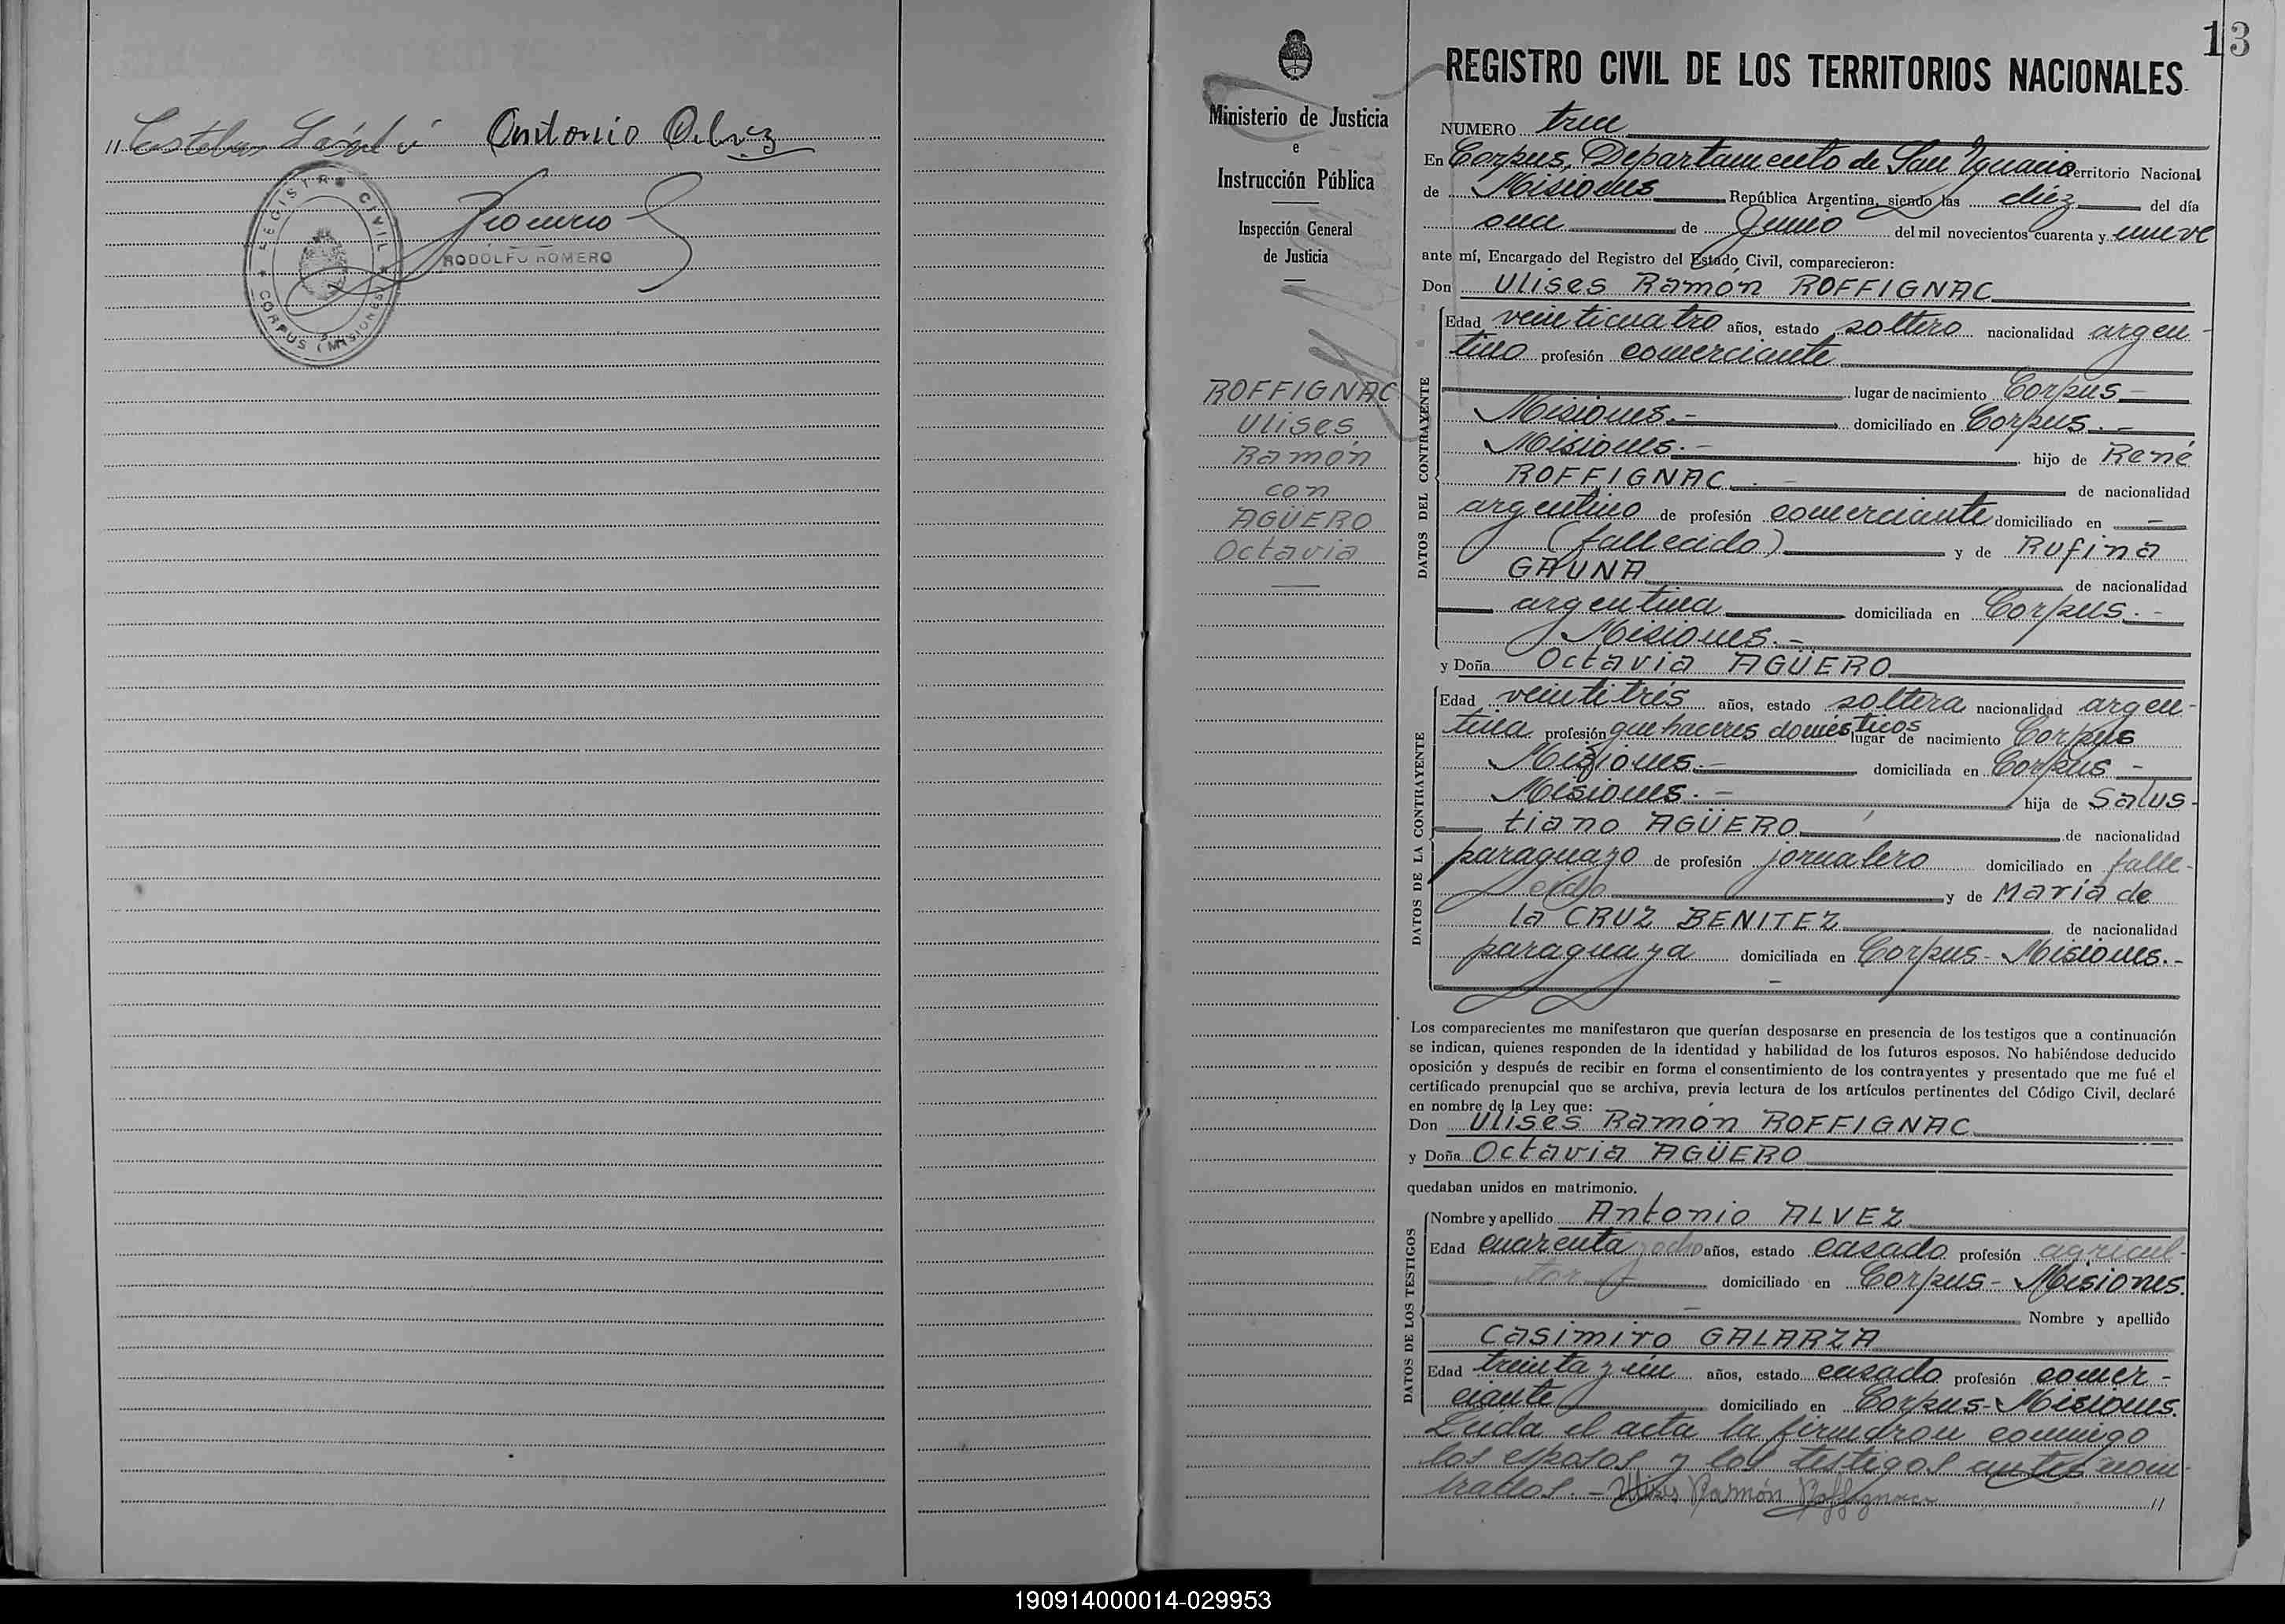 Antonio Alvez
REGISTRO CIVIL
CORPUS (MISIONES)
RODOLFO ROMERO
13
Ministerio de Justicia
e
Instrucción Pública
Inspección General
de Justicia
ROFFIGNAC
Ulises
Ramón
con
AGÜERO
Octavia
REGISTRO CIVIL DE LOS TERRITORIOS NACIONALES
NUMERO trece
En Corpus, Departamento de San Ignacio Territorio Nacional
de Misiones República Argentina, siendo las diéz del día
once de Junio del mil novecientos cuarenta y nueve
ante mí, Encargado del Registro del Estado Civil, comparecieron:
Don Ulises Ramón ROFFIGNAC
DATOS DEL CONTRAYENTE
Edad veinticuatro años, estado soltero nacionalidad argen-
tino profesión comerciante
lugar de nacimiento Corpus -
Misiones.- domiciliado en Corpus.-
Misiones.- hijo de René
ROFFIGNAC.- de nacionalidad
argentino de profesión comerciante domiciliado en -
(fallecido) y de Rufina
GAUNA de nacionalidad
argentina domiciliada en Corpus.-
Misiones.-
y Doña Octavia AGÜERO
DATOS DE LA CONTRAYENTE
Edad veintitrés años, estado soltera nacionalidad argen-
tina profesión que haceres domésticos lugar de nacimiento Corpus
Misiones.- domiciliada en Corpus -
Misiones.- hija de Salus-
tiano AGÜERO de nacionalidad
paraguayo de profesión jornalero domiciliado en falle-
cido y de María de
la CRUZ BENITEZ de nacionalidad
paraguaya domiciliada en Corpus - Misiones.-
Los comparecientes me manifestaron que querían desposarse en presencia de los testigos que a continuación
se indican, quienes responden de la identidad y habilidad de los futuros esposos. No habiéndose deducido
oposición y después de recibir en forma el consentimiento de los contrayentes y presentado que me fué el
certificado prenupcial que se archiva, previa lectura de los artículos pertinentes del Código Civil, declaré
en nombre de la Ley que:
Don Ulises Ramón ROFFIGNAC
y Doña Octavia AGÜERO
quedaban unidos en matrimonio.
DATOS DE LOS TESTIGOS
Nombre y apellido Antonio ALVEZ
Edad cuarenta y ocho años, estado casado profesión agricul-
tor domiciliado en Corpus - Misiones.
Nombre y apellido
Casimiro GALARZA
Edad treinta y un años, estado casado profesión comer-
ciante domiciliado en Corpus - Misiones.
Leida el acta la firmaron conmigo
los esposos y los testigos antes nom-
brados.- Ulises Ramón Roffignac //
190914000014-029953